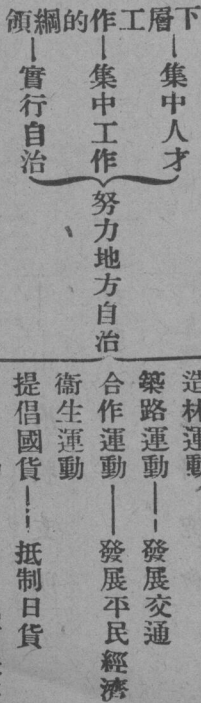 下層工作的綱領
集中人才
集中工作
實行自治
努力地方自治
造林運動
築路運動——發展交通
合作運動——發展平民經濟
衞生運動
提倡國貨——抵制日貨